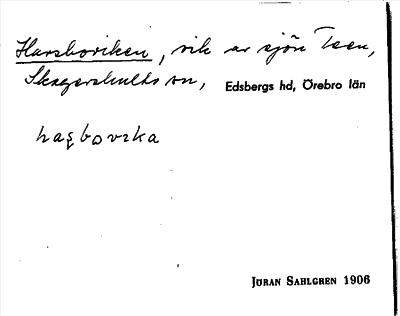 Harsboviken, vik av sjön Teen,
Skagershults sn, Edsbergs hd, Örebro län
haşbovıka
JÖRAN SAHLGREN 1906